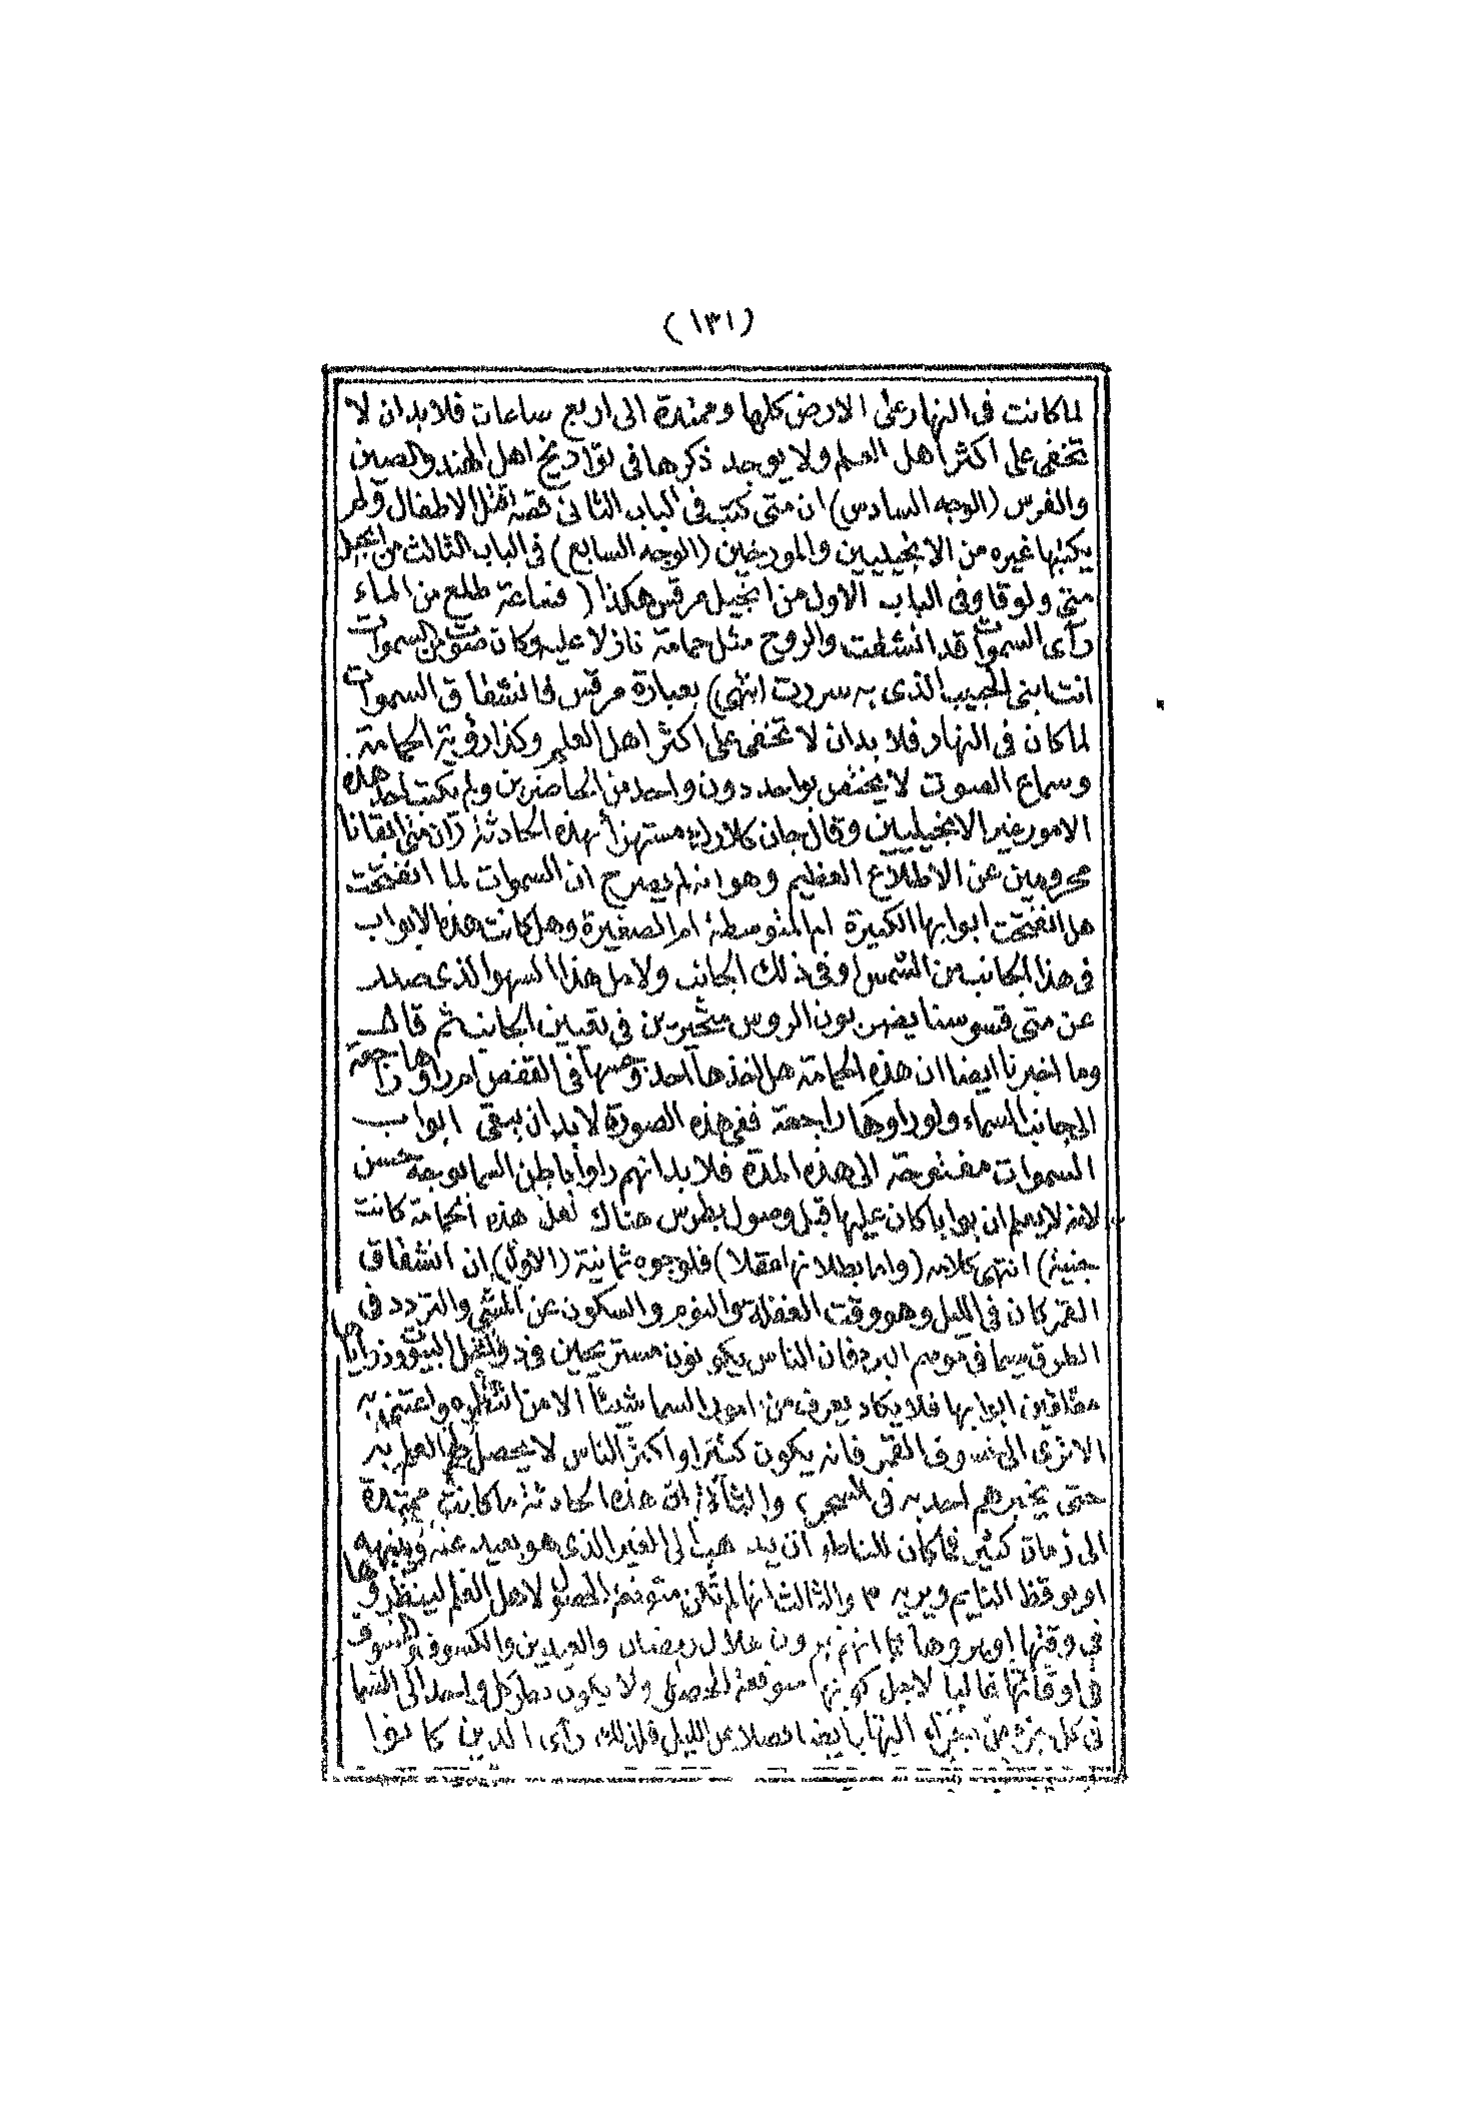 (١٣١)
لما كانت فى النهار على الارض كلها وممتدة الى اربع ساعات فلابد ان لا
تخفى على اكثر اهل العلم ولا يوجد ذكرها فى تواريخ اهل الهند والصين
والفرس (الوجه السادس) ان متى كتب فى الباب الثانى قصة قتل الاطفال ولم
يكتبها غيره من الانجيليين والمورخين (الوجه السابع) فى الباب الثالث من انجيل
متى ولوقا وفى الباب الاول من انجيل مرقس هكذا (فساعة طلع من الماء
رأى السموات قد انشقت والروح مثل حمامة نازلا عليه وكان صوت من السموات
انت ابنى الحبيب الذى به سررت انتهى) بعبارة مرقس فانشقاق السموات
لما كان فى النهار فلا بد ان لا تخفى على اكثر اهل العلم وكذا رؤية الحمامة
وسماع الصوت لا يختص بواحد دون واحد من الحاضرين ولم يكتب احد هذه
الامور غير الانجيليين وقال جان كلارك مستهزأ بهذه الحادثة ان متى ابقانا
محرومين عن الاطلاع العظيم وهو انه لم يصرح ان السموات لما انفتحت
هل انفتحت ابوابها الكبيرة ام المتوسطة ام الصغيرة وهل كانت هذه الابواب
فى هذا الجانب من الشمس او فى ذلك الجانب ولاجل هذا السهو الذى صدر
عن متى قسوسنا يضربون الروس متحيرين فى تعيين الجانب ثم قال
وما اخبرنا ايضا ان هذه الحمامة هل اخذها احد وحبسها فى القفص ام راوها راجعة
الى جانب السماء ولو راوها راجعة ففى هذه الصورة لا بد ان يبقى ابواب
السموات مفتوحة الى هذه المدة فلا بد انهم راوا باطن السما بوجه حسن
لانه لا يعلم ان بوابا كان عليها قبل وصول بطرس هناك لعل هذه الحمامة كانت
جنية) انتهى كلامه (واما بطلانها عقلا) فلوجوه ثمانية (الاول) ان انشقاق
القمر كان فى الليل وهو وقت الغفلة والنوم والسكون عن المشى والتردد فى
الطرق سيما فى موسم البرد فان الناس يكونون مستريحين فى دواخل البيوت وزواياها
مغلقين ابوابها فلا يكاد يعرف من امور السما شيئا الا من انتظره واعتنى به
الا ترى الى خسوف القمر فانه يكون كثيرا واكثر الناس لا يحصل لهم العلم به
حتى يخبرهم احد به فى السحر، والثانى ان هذه الحادثة ما كانت ممتدة
الى زمان كثير فما كان للناظر ان يذهب الى الغير الذى هو بعيد عنه وينبهه
او يوقظ النايم ويريه ٣ والثالث انها لم تكن متوقعة الحصول لاهل العلم لينظروها
فى وقتها او يروها كما انهم يرون هلال رمضان والعيدين والكسوف والخسوف
فى اوقاتها غالبا لاجل كونها متوقعة الحصول ولا يكون نظر كل واحد الى السما
فى كل جزء من اجزاء النهار ايضا فضلا عن الليل فلذلك رأى الذين كانوا